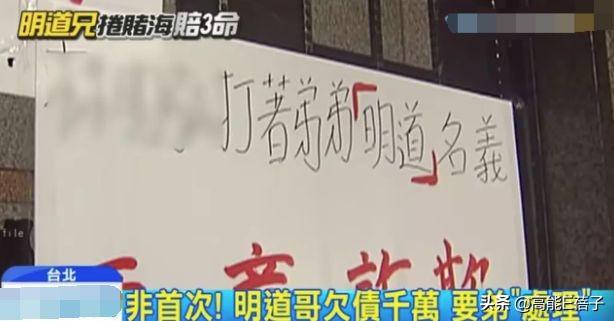 明道兄捲賭海賠3命
打著弟弟「明道」名義
file
台北
非首次! 明道哥欠債千萬 要弟"處理"
头条 @高能巨笞子